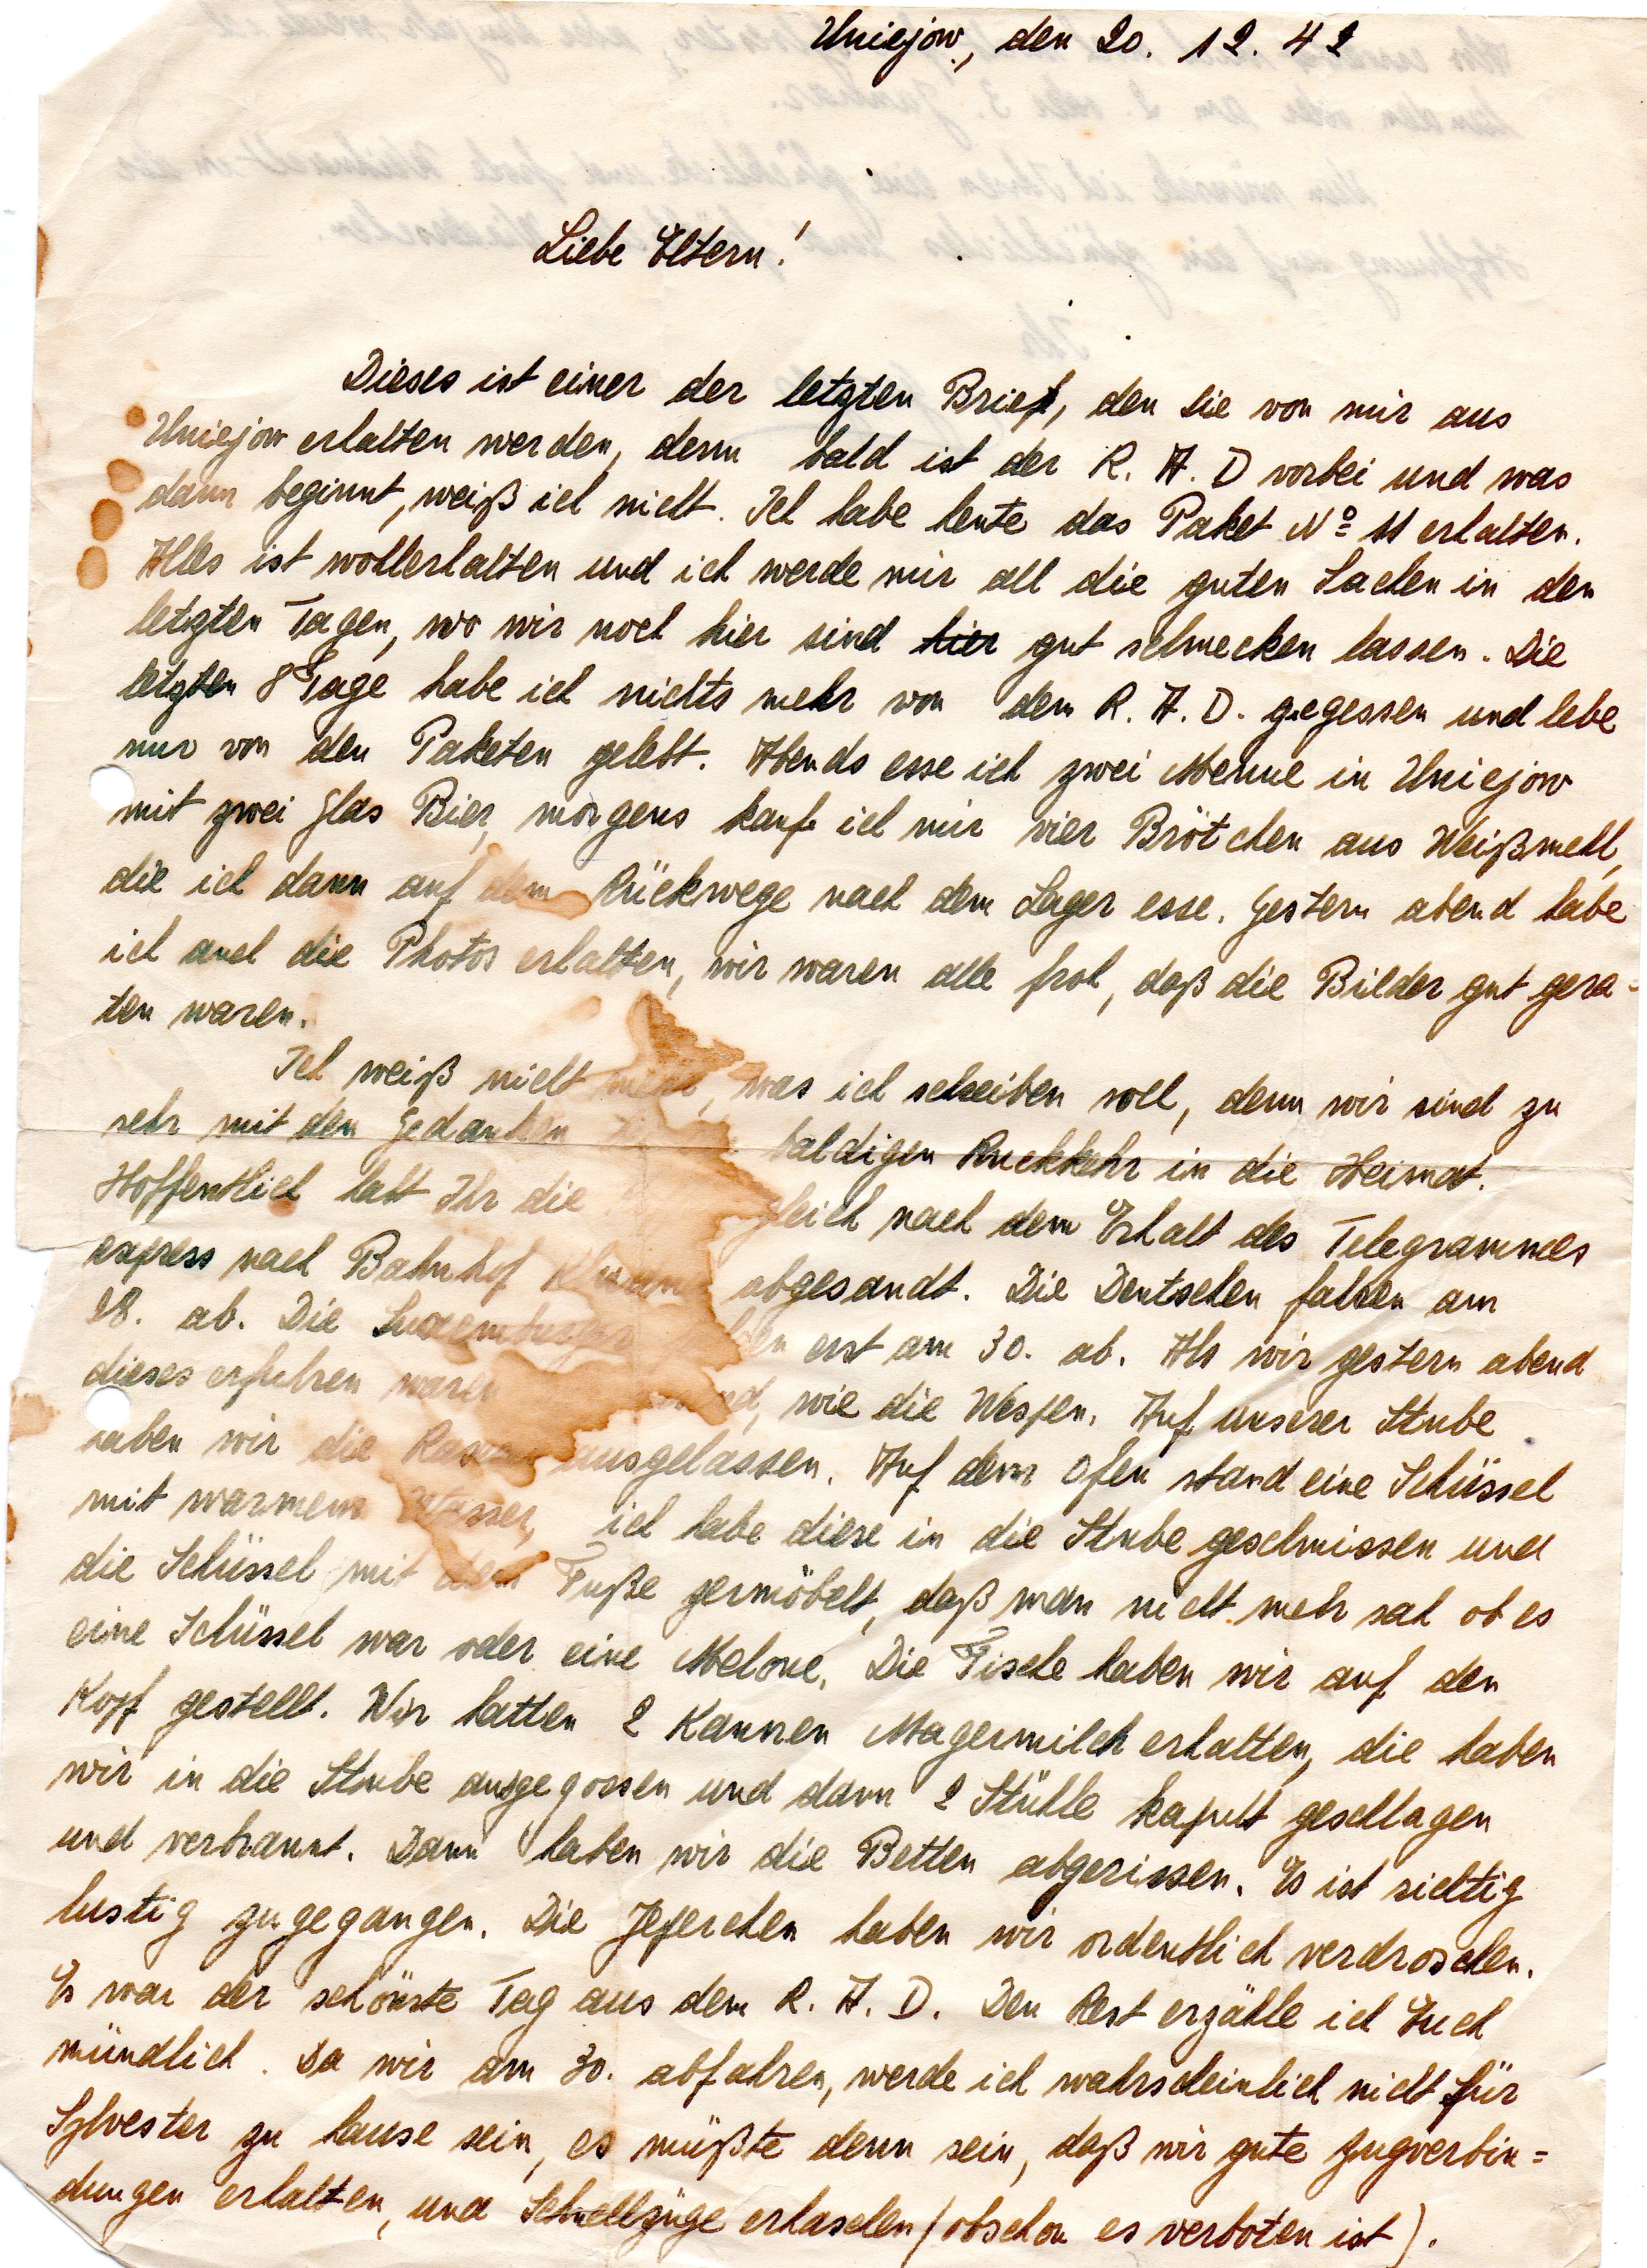 Uniejow, den 20. 12. 42
Liebe Eltern!
Dieses ist einer der letzten Brief, den Sie von mir aus
Uniejow erhalten werden, denn bald ist der R. A. D vorbei und was
dann beginnt, weiß ich nicht. Ich habe heute das Paket No 11 erhalten.
Alles ist wollerhalten und ich werde mir all die guten Sachen in den
letzten Tagen, wo wir noch hier sind hier gut schmecken lassen. Die
letzten 8 Tage habe ich nichts mehr von dem R. A. D. gegessen und lebe
nur von den Paketen gelebt. Abends esse ich zwei Menue in Uniejow
mit zwei Glas Bier, morgens kaufe ich mir vier Brötchen aus Weißmehl,
die ich dann auf dem Rückwege nach dem Lager esse. Gestern abend habe
ich auch die Photos erhalten, wir waren alle froh, daß die Bilder gut gera=
ten waren.
Ich weiß nicht mehr, was ich schreiben soll, denn wir sind zu
sehr mit den Gedanken baldigen Ruckkehr in die Heimat.
Hoffentlich habt Ihr die gleich nach dem Erhalt des Telegrammes
express nach Bahnhof abgesandt. Die Deutschen fahren am
28. ab. Die Luxemburger erst am 30. ab. Als wir gestern abend
dieses erfuhren waren wie die Wespen. Auf unserer Stube
haben wir die ausgelassen. Auf dem Ofen stand eine Schüssel
mit warmem Wasser, ich habe diese in die Stube geschmissen und
die Schüssel mit dem Fuße zermöbelt, daß man nicht mehr sah ob es
eine Schüssel war oder eine Melone. Die Tische haben wir auf den
Kopf gestellt. Wir hatten 2 Kannen Magermilch erhalten, die haben
wir in die Stube ausgegossen und dann 2 Stühle kaputt geschlagen
und verbrannt. Dann haben wir die Betten abgerissen. Es ist richtig
lustig zugegangen. Die haben wir ordentlich verdroschen.
Es war der schönste Tag aus dem R. A. D. Den Rest erzähle ich Euch
mündlich. Da wir am 30. abfahren, werde ich wahrscheinlich nicht für
Sylvester zu hause sein, es müßte denn sein, daß wir gute Zugverbin=
dungen erhalten, und Schnellzüge erhaschen (obschon es verboten ist).